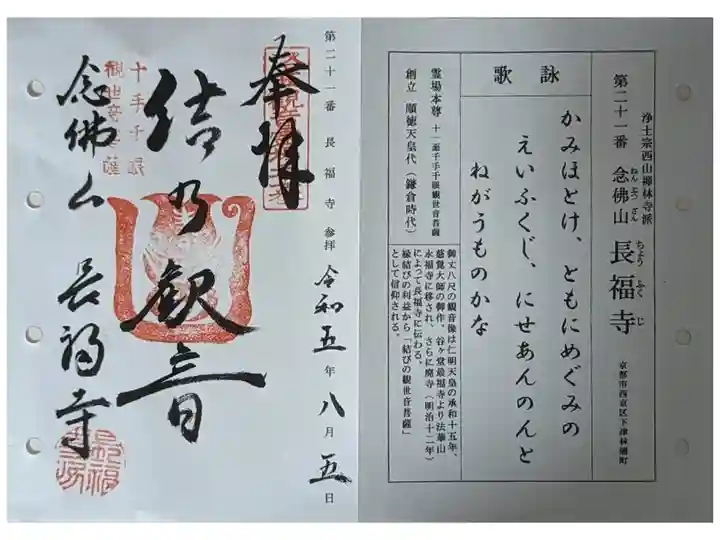 浄土宗西山禅林寺派
第二十一番 念佛山 長福寺
ねんぶつざん ちょうふくじ
京都市西京区下津林楠町
詠歌
かみほとけ、ともにめぐみの
えいふくじ、にせあんのんと
ねがうものかな
霊場本尊 十一面千手千眼観世音菩薩
創立 順徳天皇代（鎌倉時代）
御丈八尺の観音像は仁明天皇の承和十五年、
慈覚大師の御作。谷ヶ堂最福寺より法華山
永福寺に移され、さらに廃寺（明治十二年）
によって長福寺に伝わる。
縁結びの利益から「結びの観世音菩薩」
として信仰される。
第二十一番 長福寺 参拝 令和五年八月五日
奉拝
結乃観音
十手千眼
観世音菩薩
念佛山 長福寺